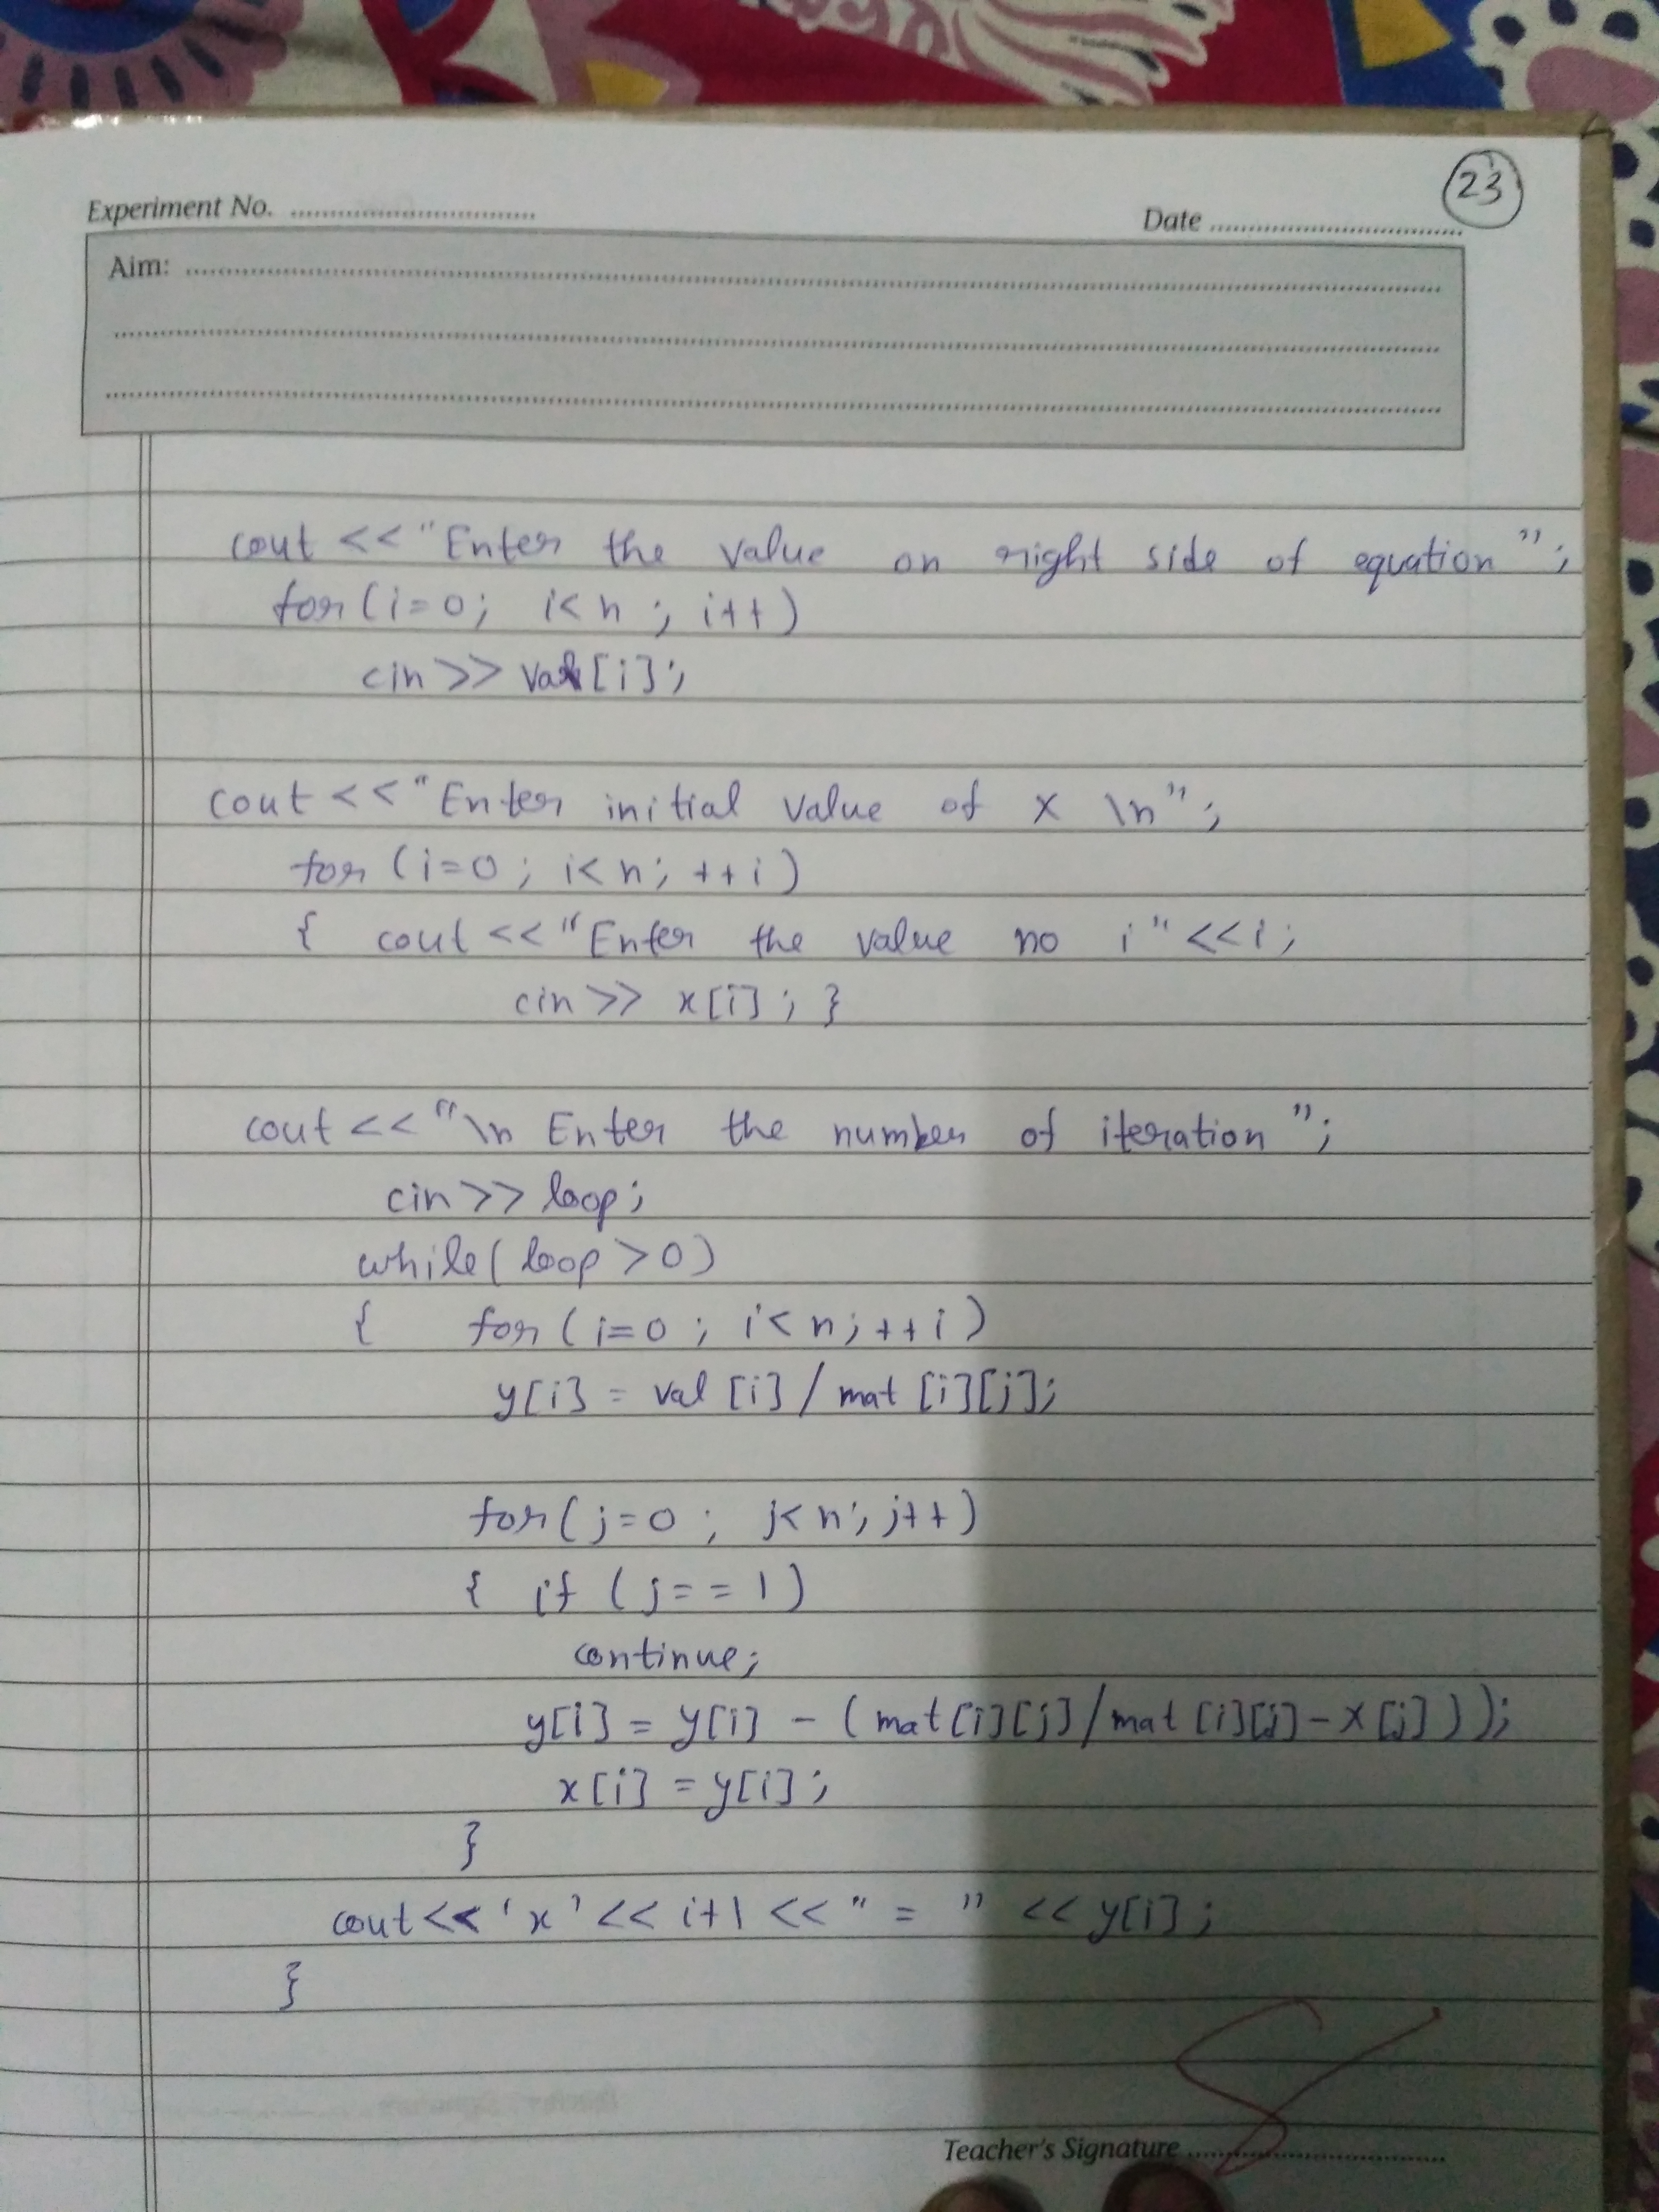 23
Experiment No. ..............................
Date ..............................
Aim: ..............................
cout << "Enter the value on right side of equation";
for(i=0; i<n ; i++)
cin >> val[i];
cout << "Enter initial value of x \n";
for (i=0 ; i<n; ++i)
{ cout << "Enter the value no i" <<i;
cin >> x[i] ; }
cout << "\n Enter the number of iteration ";
cin >> loop;
while( loop > 0)
{ for ( i=0 ; i<n; ++i )
y[i] = val [i] / mat [i][j];
for( j=0 ; j<n; j++)
{ if ( j==1)
continue;
y[i] = y[i] - ( mat[i][j]/mat [i][j]-x[j]));
x[i] = y[i];
}
cout<< 'x' << i+1 << " = " << y[i];
}
Teacher's Signature ..............................